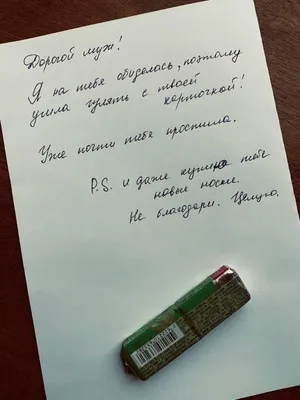 Дорогой муж!
Я на тебя обиделась, поэтому
ушла гулять с твоей
карточкой!
Уже почти тебя простила.
P.S. и даже купила тебе
новые носки.
Не благодари. Целую.